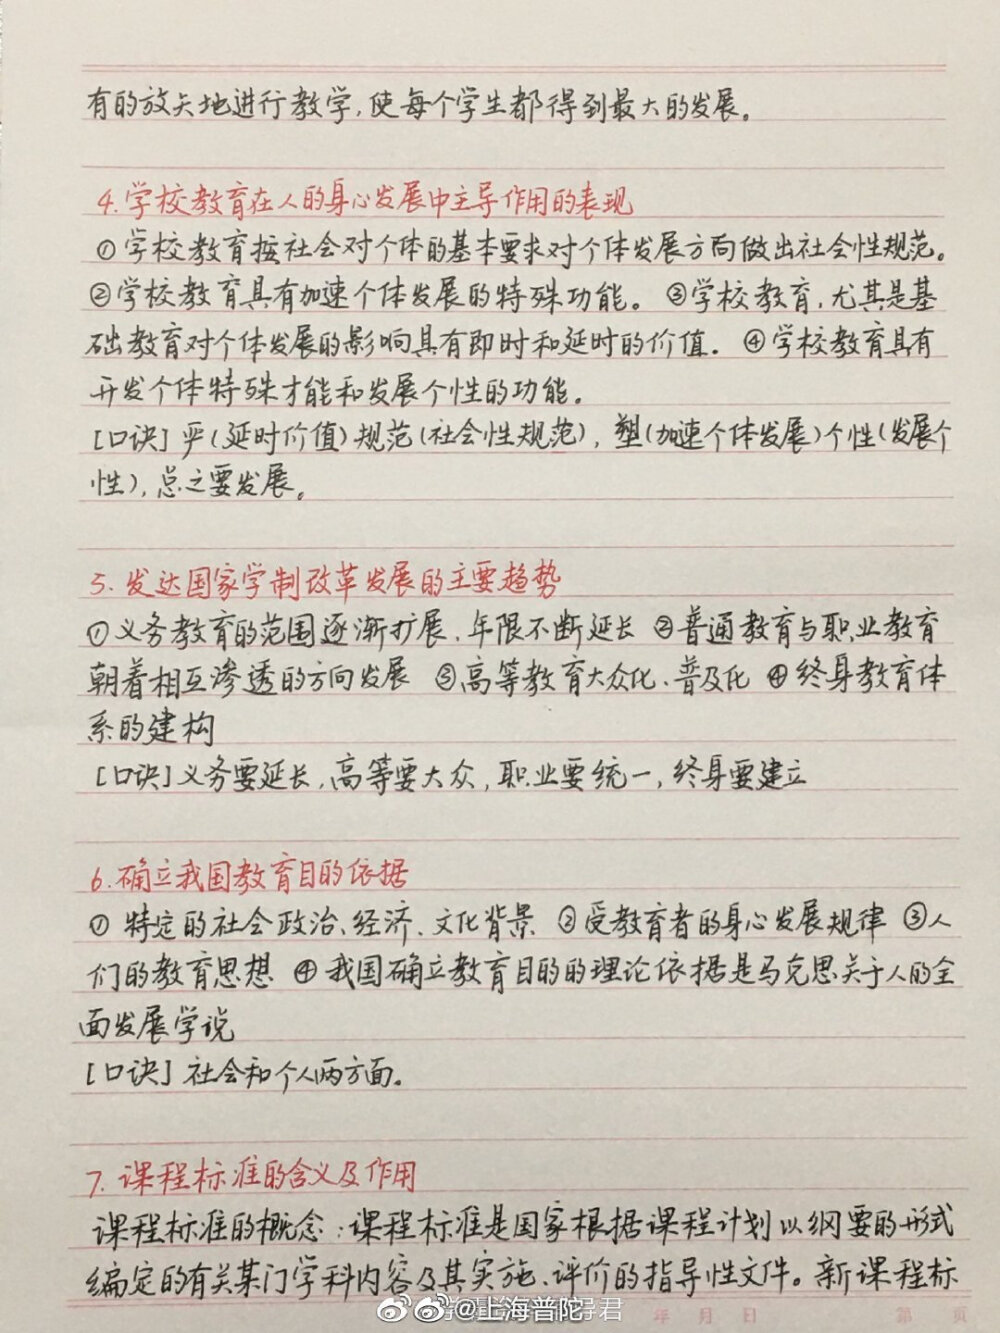 有的放矢地进行教学,使每个学生都得到最大的发展。
4.学校教育在人的身心发展中主导作用的表现
①学校教育按社会对个体的基本要求对个体发展方向做出社会性规范。
②学校教育具有加速个体发展的特殊功能。③学校教育,尤其是基
础教育对个体发展的影响具有即时和延时的价值. ④学校教育具有
开发个体特殊才能和发展个性的功能。
[口诀]严(延时价值)规范(社会性规范),塑(加速个体发展)个性(发展个
性),总之要发展。
5.发达国家学制改革发展的主要趋势
①义务教育的范围逐渐扩展、年限不断延长 ②普通教育与职业教育
朝着相互渗透的方向发展 ③高等教育大众化、普及化 ④终身教育体
系的建构
[口诀]义务要延长,高等要大众,职业要统一,终身要建立
6.确立我国教育目的依据
① 特定的社会政治、经济、文化背景 ②受教育者的身心发展规律 ③人
们的教育思想 ④我国确立教育目的的理论依据是马克思关于人的全
面发展学说
[口诀]社会和个人两方面。
7.课程标准的含义及作用
课程标准的概念:课程标准是国家根据课程计划以纲要的形式
编定的有关某门学科内容及其实施、评价的指导性文件。新课程标
@上海普陀导君
年 月 日 第 页